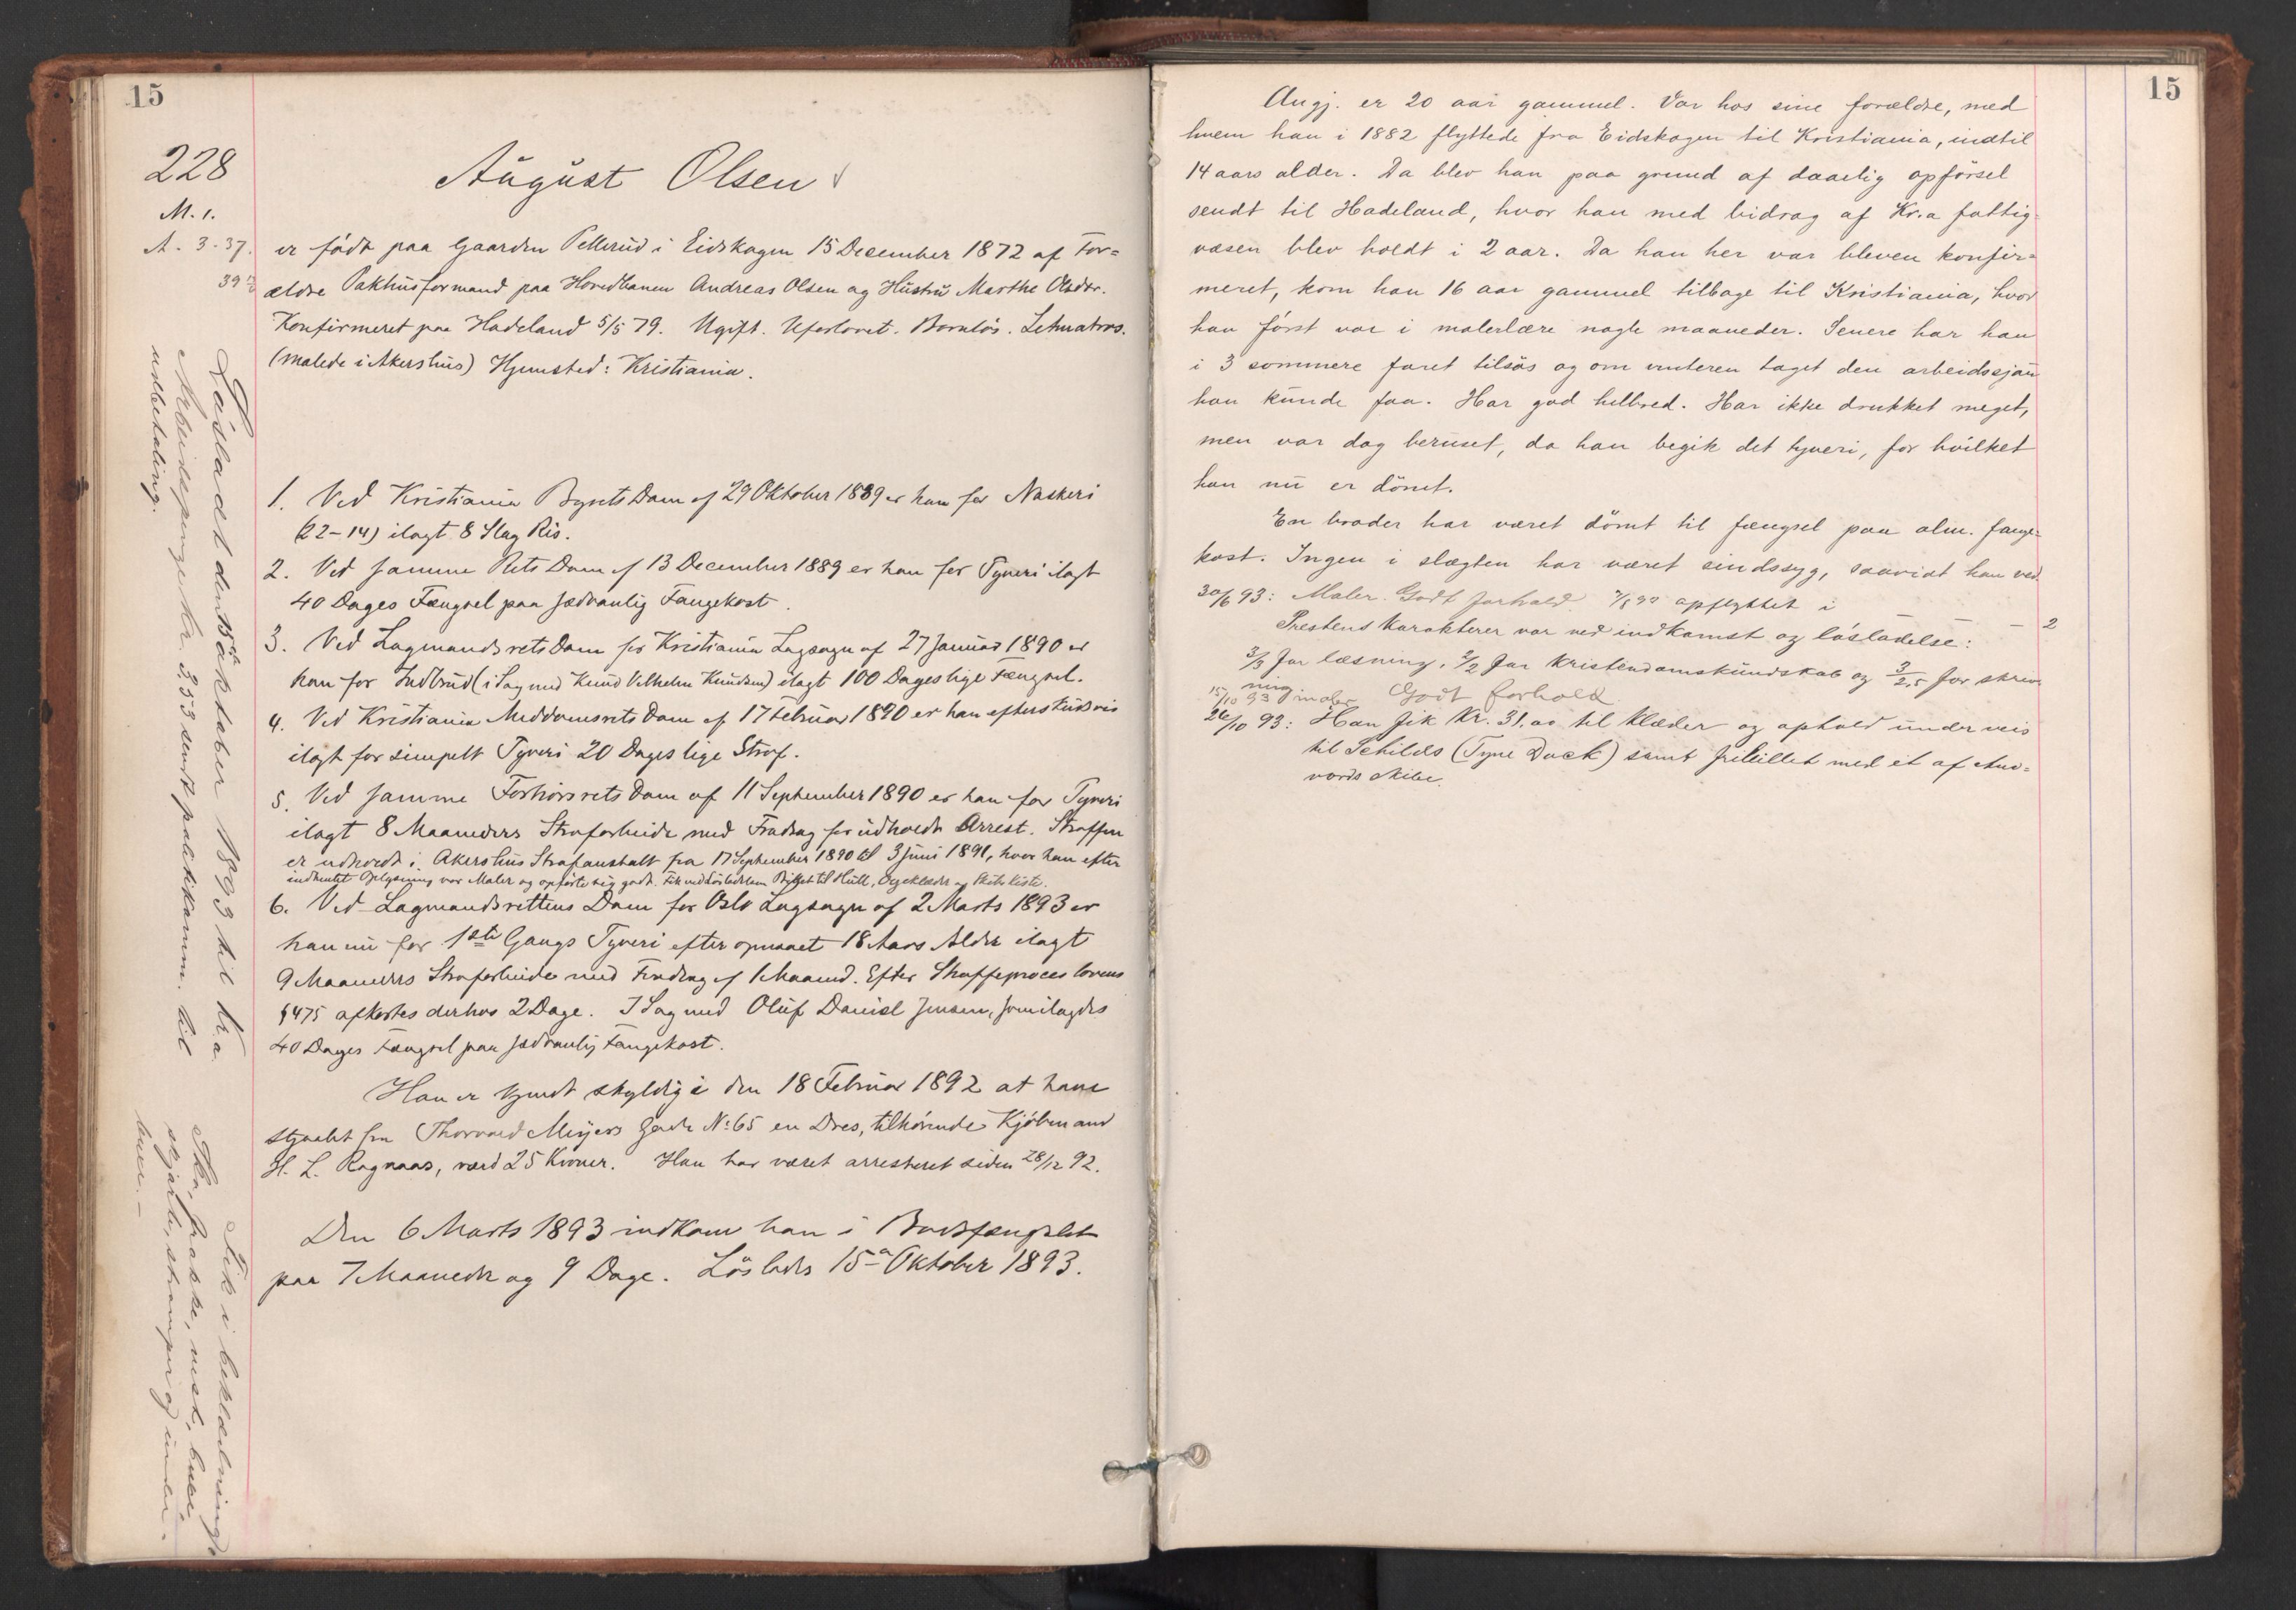 15
228
M. 1.
A. 3-37.
39
August Olsen
er födt paa Gaarden Pellerud i Eidskogen 15 December 1872 af For=
ældre Pakhusformand paa Hovedbanen Andreas Olsen og Hustru Marthe Olsdtr.
Konfirmeret paa Hadeland 5/5 79. Ugift. Uforlovet. Barnlös. Letmatros.
(malede i Akershus) Hjemsted: Kristiania.
1. Ved Kristiania Byrets Dom af 29 Oktober 1889 er han for Naskeri
(22-14) ilagt 8 Slag Ris.
2. Ved samme Rets Dom af 13 December 1889 er han for Tyveri ilagt
40 Dages Fængsel paa sædvanlig Fangekost.
3. Ved Lagmandsrets Dom for Kristiania Lagsogn af 27 Januar 1890 er
han for Indbrud (i Sag med Knud Vilhelm Knudsen) ilagt 100 Dages lige Fængsel.
4. Ved Kristiania Meddomsrets Dom af 17 Februar 1890 er han efterskudsvis
ilagt for simpelt Tyveri 20 Dages lige Straf.
5. Ved samme Forhörsrets Dom af 11 September 1890 er han for Tyveri
ilagt 8 Maaneders Strafarbeide med Fradrag for udholdt Arrest. Straffen
er udholdt i Akershus Strafanstalt fra 17 September 1890 til 3 Juni 1891, hvor han efter
indhentet Oplysning var Maler og opförte sig godt. Fik ved Lösladelsen Billet til Hull, Oljeklæder og Skibskiste.
6. Ved Lagmandsrettens Dom for Oslo Lagsogn af 2 Marts 1893 er
han nu for 1ste Gangs Tyveri efter opnaaet 18 Aars Alder ilagt
9 Maaneders Strafarbeide med Fradrag af 1 Maaned. Efter Straffeproceslovens
§475 afkortes derhos 2 Dage. I Sag med Oluf Daniel Jensen, som ilagdes
40 Dages Fængsel paa sædvanlig Fangekost.
Han er kjendt skyldig i den 18 Februar 1892 at have
stjaalet fra Thorvald Meyers Gade No 65 en Dres, tilhörende Kjöbmand
H. L. Rognaas, værd 25 Kroner. Han har været arresteret siden 28/12 92.
Den 6 Marts 1893 indkom han i Bodsfængslet
paa 7 Maaneder og 9 Dage. Löslades 15de Oktober 1893.
Lösladt den 15de oktober 1893 til Kr.a
Arbeidspenge kr. 3,53 sendt politikamm. til
udbetaling.
Fik i beklædning
Sko, frakke, vest, buxe,
skjorte, strömper og under-
buxe. -
15
Angj. er 20 aar gammel. Var hos sine forældre, med
hvem han i 1882 flyttede fra Eidskogen til Kristiania, indtil
14 aars alder. Da blev han paa grund af daarlig opförsel
sendt til Hadeland, hvor han med bidrag af Kr.a fattig-
væsen blev holdt i 2 aar. Da han her var bleven konfir=
meret, kom han 16 aar gammel tilbage til Kristiania, hvor
han först var i malerlære nogle maaneder. Senere har han
i 3 sommere faret tilsös og om vinteren taget den arbeidssjau
han kunde faa. Har god helbred. Har ikke drukket meget,
men var dog beruset, da han begik det tyveri, for hvilket
han nu er dömt.
En broder har været dömt til fængsel paa alm. fange-
kost. Ingen i slægten har været sindssyg, saavidt han ved.
30/6 93: Maler. Godt forhold. opflyttet i
— — 2
Prestens Karakterer var ved indkomst og lösladelse:
3/3 for læsning, 2/2 for kristendomskundskab og 3/2,5 for skriv-
ning
15/10 93 maler Godt forhold
26/10 93: Han fik Kr. 31.00 til klæder og ophold underveis
til Schilds (Tyne Dock) samt fribillet med et af
skibe.